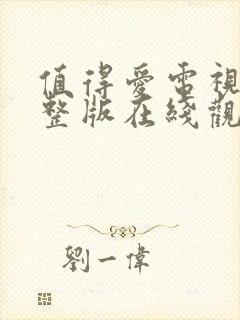 值得愛電視
整版在綫觀
劉一偉